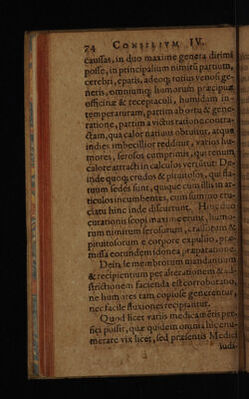 74 CONSILIVM IV.
caussas, in duo maxime genera dirimi
posse, in principalium nimirũ partium,
cerebri, epatis, adeoq; totius venosi ge-
neris, omniumq; humorum præcipuæ
officinæ & receptaculi, humidam in-
temperaturam, partim ab ortu & gene-
ratione, partim a victus ratione contra-
ctam, qua calor nativus obtuitur, atque
indies imbecillior redditur, varios hu-
mores, serosos comprimis, qui renum
calore attacti in calculos vertũtur: De-
inde quoq; crudos & pituitosos, qui fla-
tuum sedes sunt, quique cum illis in ar-
ticulos incumbentes, cum summo cru-
ciatu hinc inde discurrunt. Hinc duo
curationis scopi maxime erunt, humo-
rum nimirum serosorum, crassorum &
pituitosorum e corpore expulsio, præ-
missa eorundem idonea præparatione.
Dein, se membrorum mandantium
& recipientium per alterationem & ad-
strictionem facienda est corroboratio,
ne humores tam copiose generentur,
nec facile fluxiones recipiantur.
Quod licet variis medicamẽtis per-
fici possit, quæ quidem omnia hic enu-
merare vix licet, sed præsentis Medici
iudi-